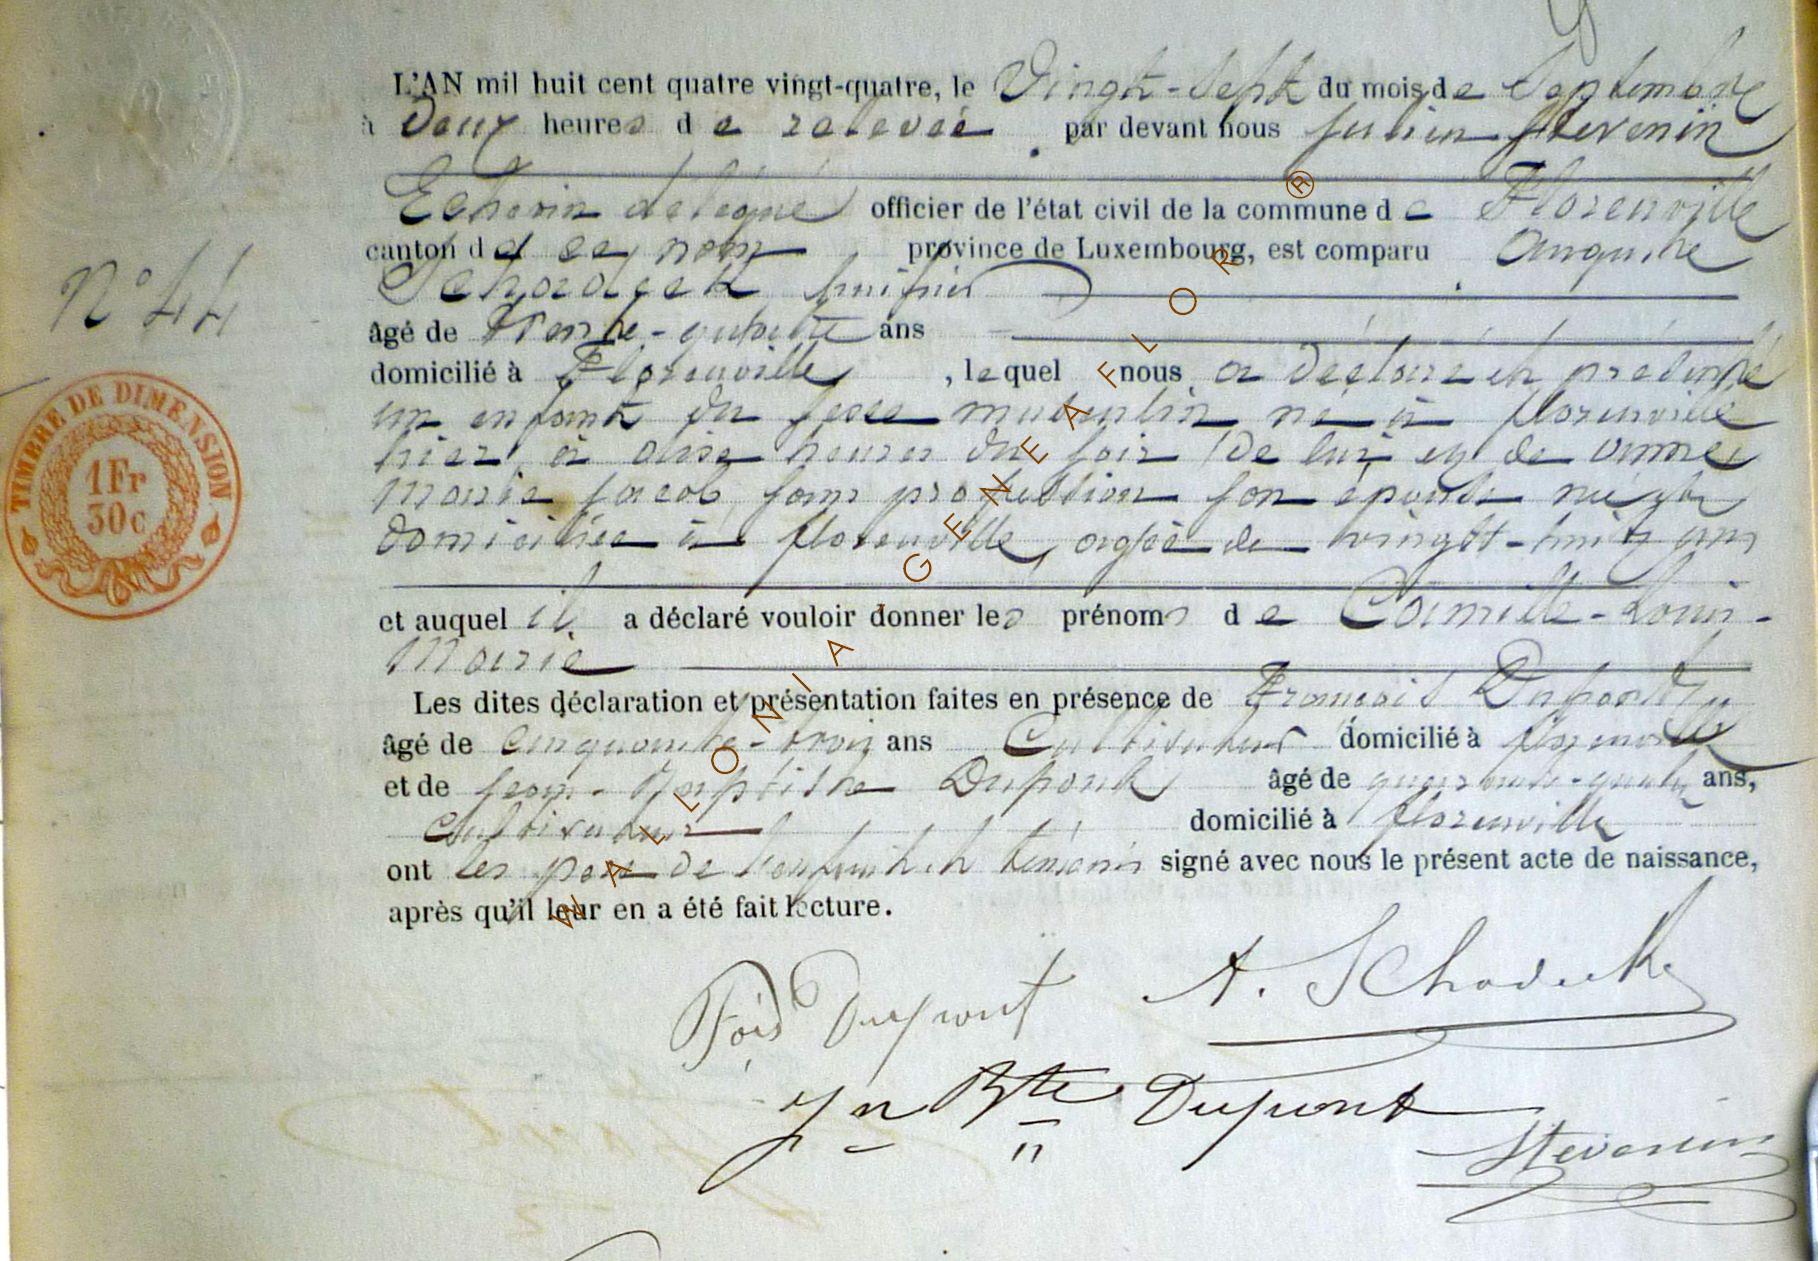 L'AN mil huit cent quatre vingt-quatre, le Vingt-Sept du mois de Septembre
à deux heures de relevée par devant nous Julien Stevenin
Echevin délégué officier de l'état civil de la commune de Florenville
canton de ce nom province de Luxembourg, est comparu Auguste
Schodeck huissier
N° 44
âgé de trente-quatre ans
domicilié à Florenville, lequel nous a déclaré et présenté
un enfant du sexe masculin né à florenville
hier à onze heures du soir de lui et de Anne
Marie Jacob sans profession son épouse née et
domiciliée à florenville, agée de vingt-huit ans
et auquel il a déclaré vouloir donner les prénoms de Camille-Louis-
Marie
Les dites déclaration et présentation faites en présence de François Dupont
âgé de Cinquante-trois ans Cultivateur domicilié à florenville
et de Jean-Baptiste Dupont âgé de quarante-quatre ans,
Cultivateur domicilié à florenville
ont les père de l'enfant et témoins signé avec nous le présent acte de naissance,
après qu'il leur en a été fait lecture.
TIMBRE DE DIMENSION
1Fr
30c
WALLONIA GENEAFLOR ®
A. Schodeck
Fois Dupont
Jn Bte Dupont
Stevenin